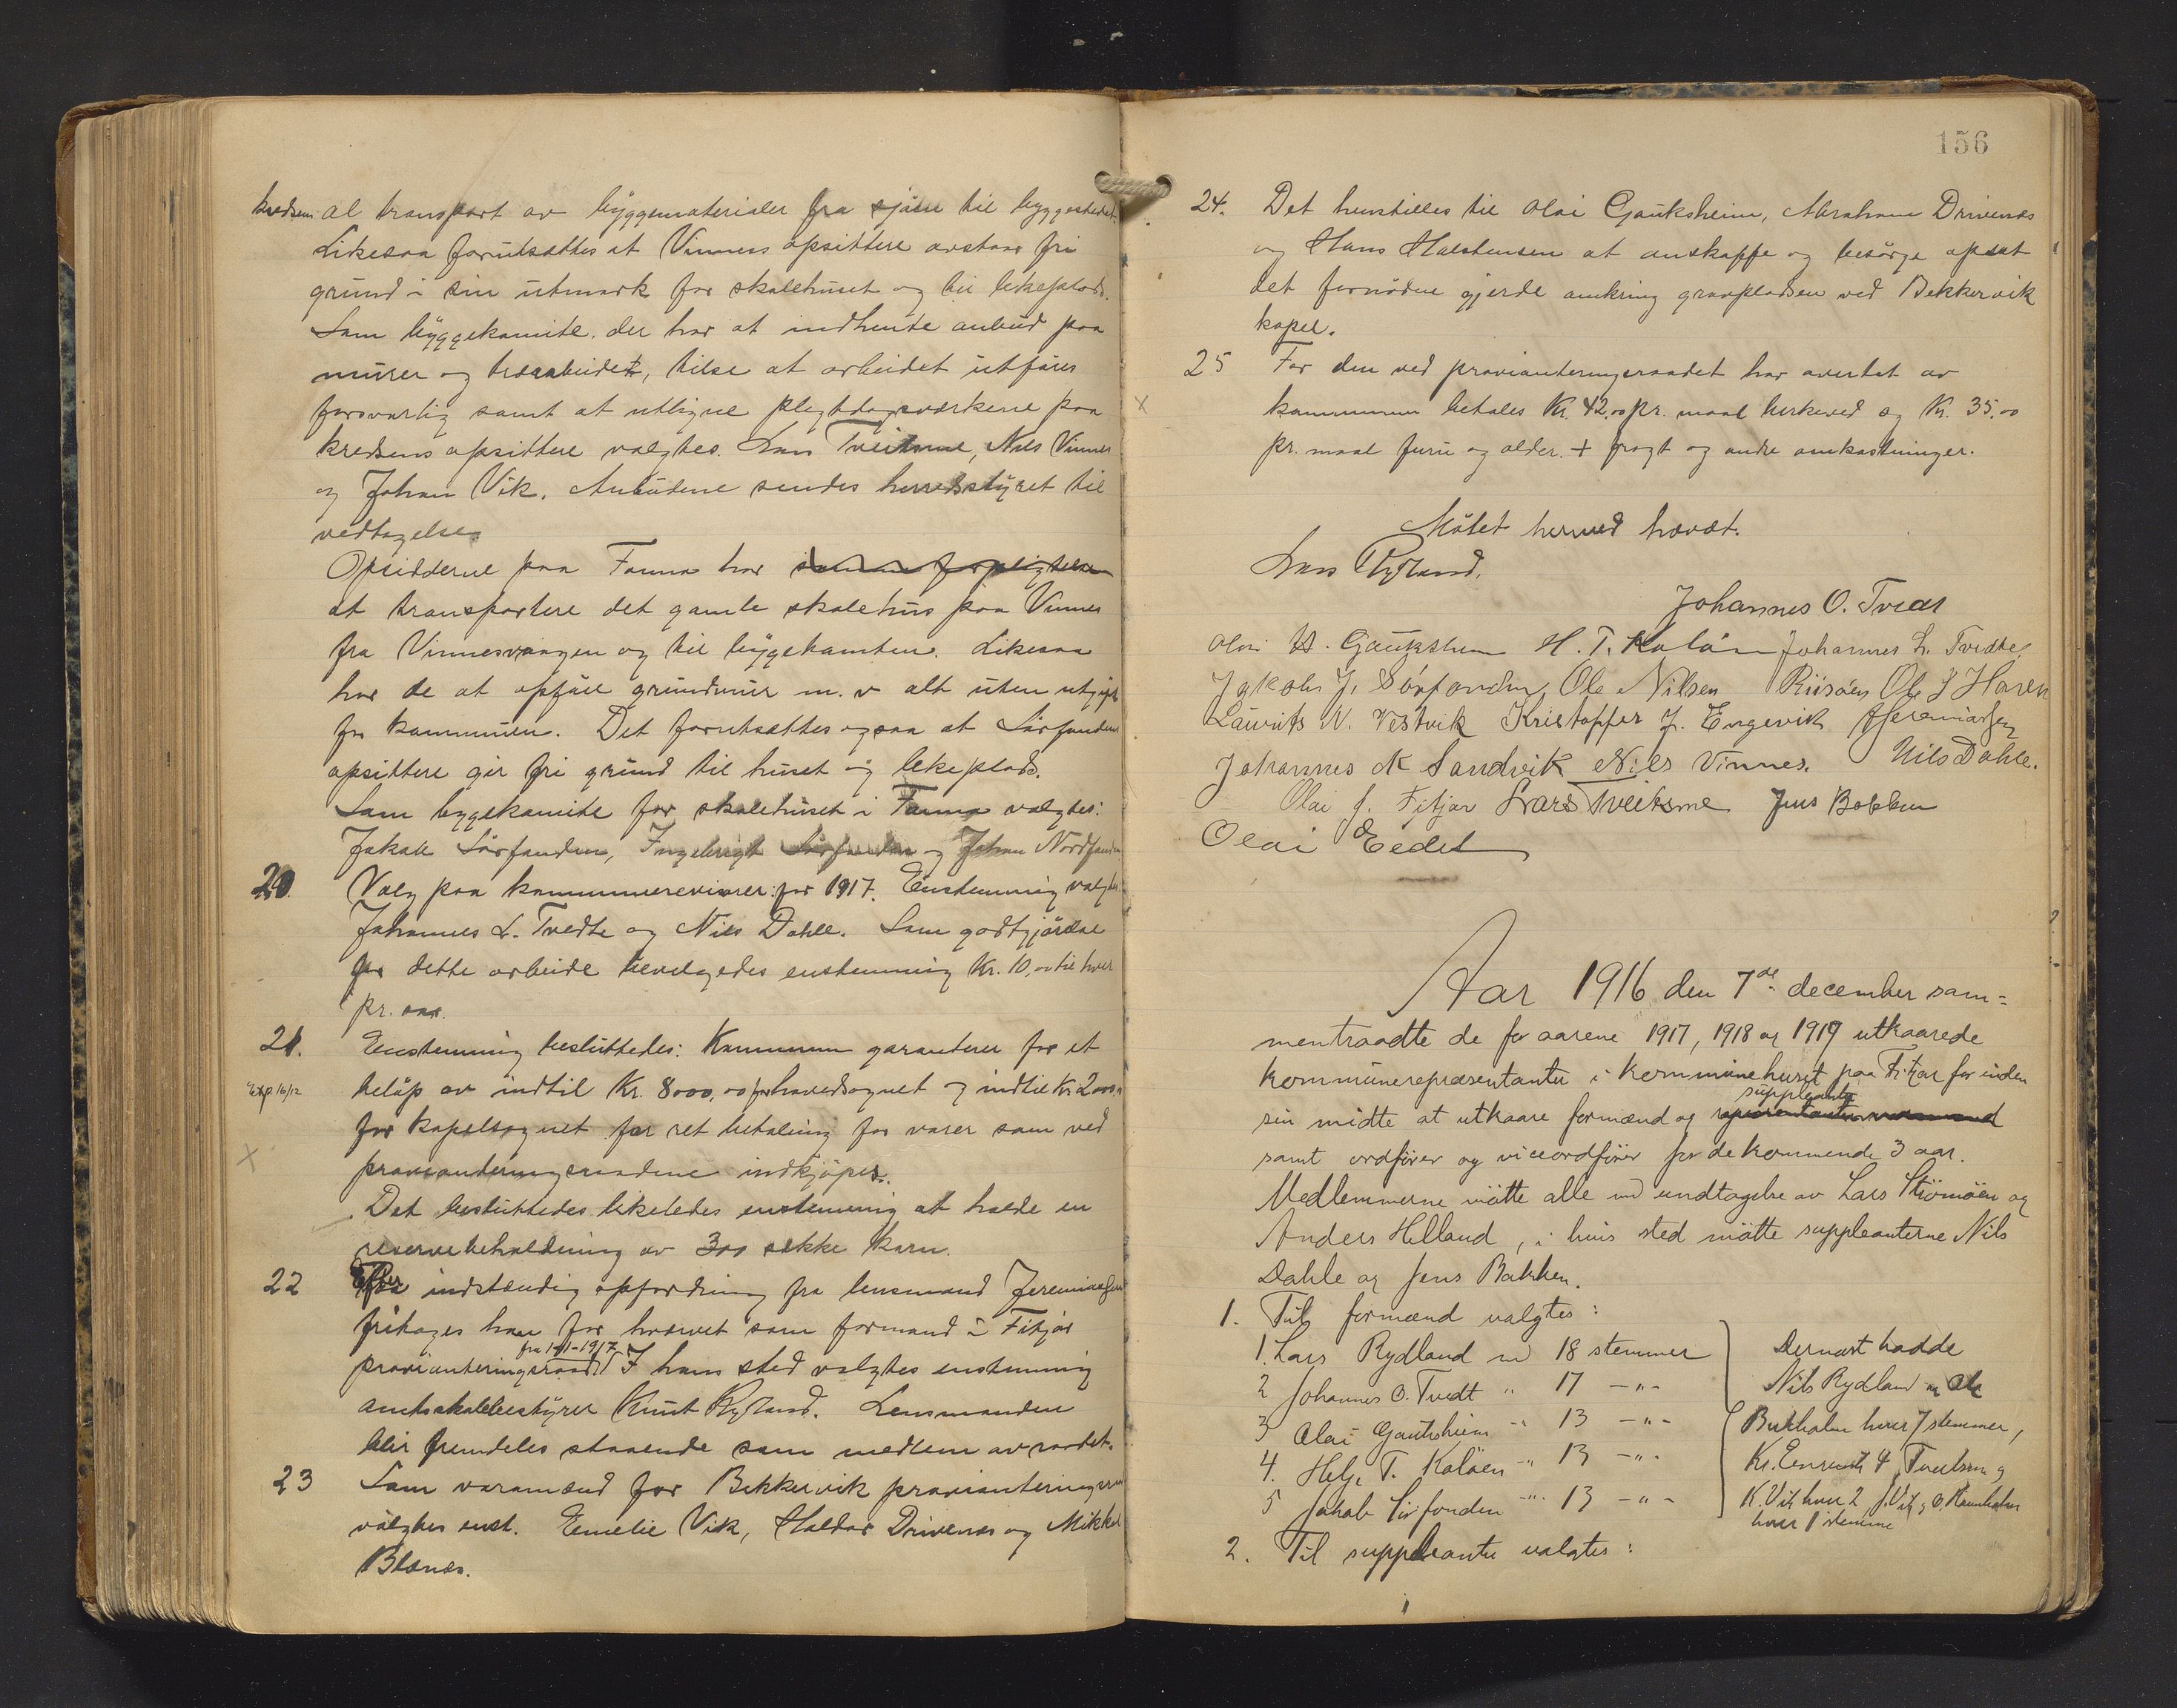 kredsen al transport av byggematerialer fra sjøen til byggestedet.
Likesaa forutsættes at Vinnes opsittere avstaar fri
grund i sin utmark for skolehuset og til lekeplads.
Som byggekomite, der har at indhente anbud paa
murer og træarbeidet, tilse at arbeidet utføres
forsvarlig samt at utligne pligtdagsverkene paa
kredsens opsittere valgtes. Lars Tveitsme, Nils Vinnes
og Johan Vik. Anbudene sendes herredsstyret til
vedtagelse.
Opsidderne paa Fonna har samme forpligtelse
at transportere det gamle skolehus paa Vinnes
fra Vinnesvaagen og til byggetomten. Likesaa
har de at opføre grundmur m. v alt uten utgift
for kommunen. Det forutsættes ogsaa at Sørfonden
opsittere gir fri grund til huset og lekeplads.
Som byggekomite for skolehuset i Fonna valgtes:
Jakob Sørfonden, Ingebrigt Sørfonden og Johan Nordfonden
20. Valg paa kommunerevisorer: for 1917. Enstemmig valgtes
Johannes L. Tvedte og Nils Dahle. Som godtgjørelse
for dette arbeide bevilgedes enstemmig Kr. 10,00 til hver
pr. aar.
21. Enstemmig besluttedes: Kommunen garanterer for et
Exp. 16/12 beløp av indtil Kr. 8000,00 for hovedsognet og indtil Kr 2000,00
for kapelsognet for ret betaling for varer som ved
provianteringsraadene indkjøpes.
Det besluttedes likeledes enstemmig at holde en
reservebeholdning av 300 sekke korn.
22 Efter indstændig opfordring fra lensmand Jeremiassen
fritages han for hvervet som formand i Fitjar
fra 1-1-1917
provianteringsraad. I hans sted valgtes enstemmig
amtsskolebestyrer Knut Rydland. Lensmanden
blir fremdeles staaende som medlem av raadet.
23 Som varamænd for Bekkervik provianteringsraad
valgtes enst. Emelie Vik, Haldor Drivenes og Mikkel
Blænes.
156
24. Det henstilles til Olai Gauksheim, Abraham Drivenes
og Hans Halstensen at anskaffe og besørge opsat
det fornødne gjerde omkring gravpladsen ved Bekkervik
kapel.
25 For den ved provianteringsraadet har overtat av
kommunen betales Kr. 42.00 pr. maal birkeved og Kr. 35.00
pr. maal furu og older. + fragt og andre omkostninger.
Møtet hermed hævet.
Lars Rydland.
Johannes O. Tveit
Olai H. Gauksheim H. T. Koløen Johannes L. Tvedte
Jakob J. Sørfonden, Ole Nilsen Riisøen Ole J Haven
Lauvits N. Vestvik Kristoffer J. Engevik Jeremiassen
Johannes N Sandvik Nils Vinnes. Nils Dahle.
Olai J. Fitjar Lars Tveitsme Jens Bakken
Olai Eidet
Aar 1916 den 7de december sam-
mentraadte de for aarene 1917, 1918 og 1919 utkaarede
kommunerepræsentanter i kommunehuset paa Fitjar for inden
suppleanter
sin midte at utkaare formænd og
samt ordfører og viceordfører for de kommende 3 aar.
Medlemmerne møtte alle med undtagelse av Lars Strömøen og
Anders Helland, i hvis sted møtte suppleanterne Nils
Dahle og Jens Bakken.
1. Til formænd valgtes:
1. Lars Rydland med 18 stemmer
2 Johannes O. Tvedt " 17 -"-
3 Olai Gauksheim " 13 -"-
4. Helje T. Koløen " 13 -"-
5 Jakob Sørfonden " 13 -"-
Dernæst hadde
Nils Rydland og Ole
Bukholm hver 7 stemmer,
Kr. Engevik 4, Tveitsme og
K. Vik hver 2, J. Vik og O.
hver 1 stemme
2. Til suppleanter valgtes: